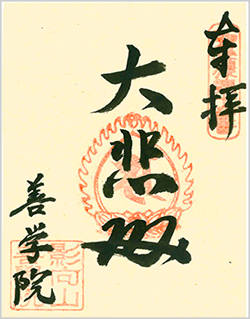 奉拝
大悲殿
善学院
影向山